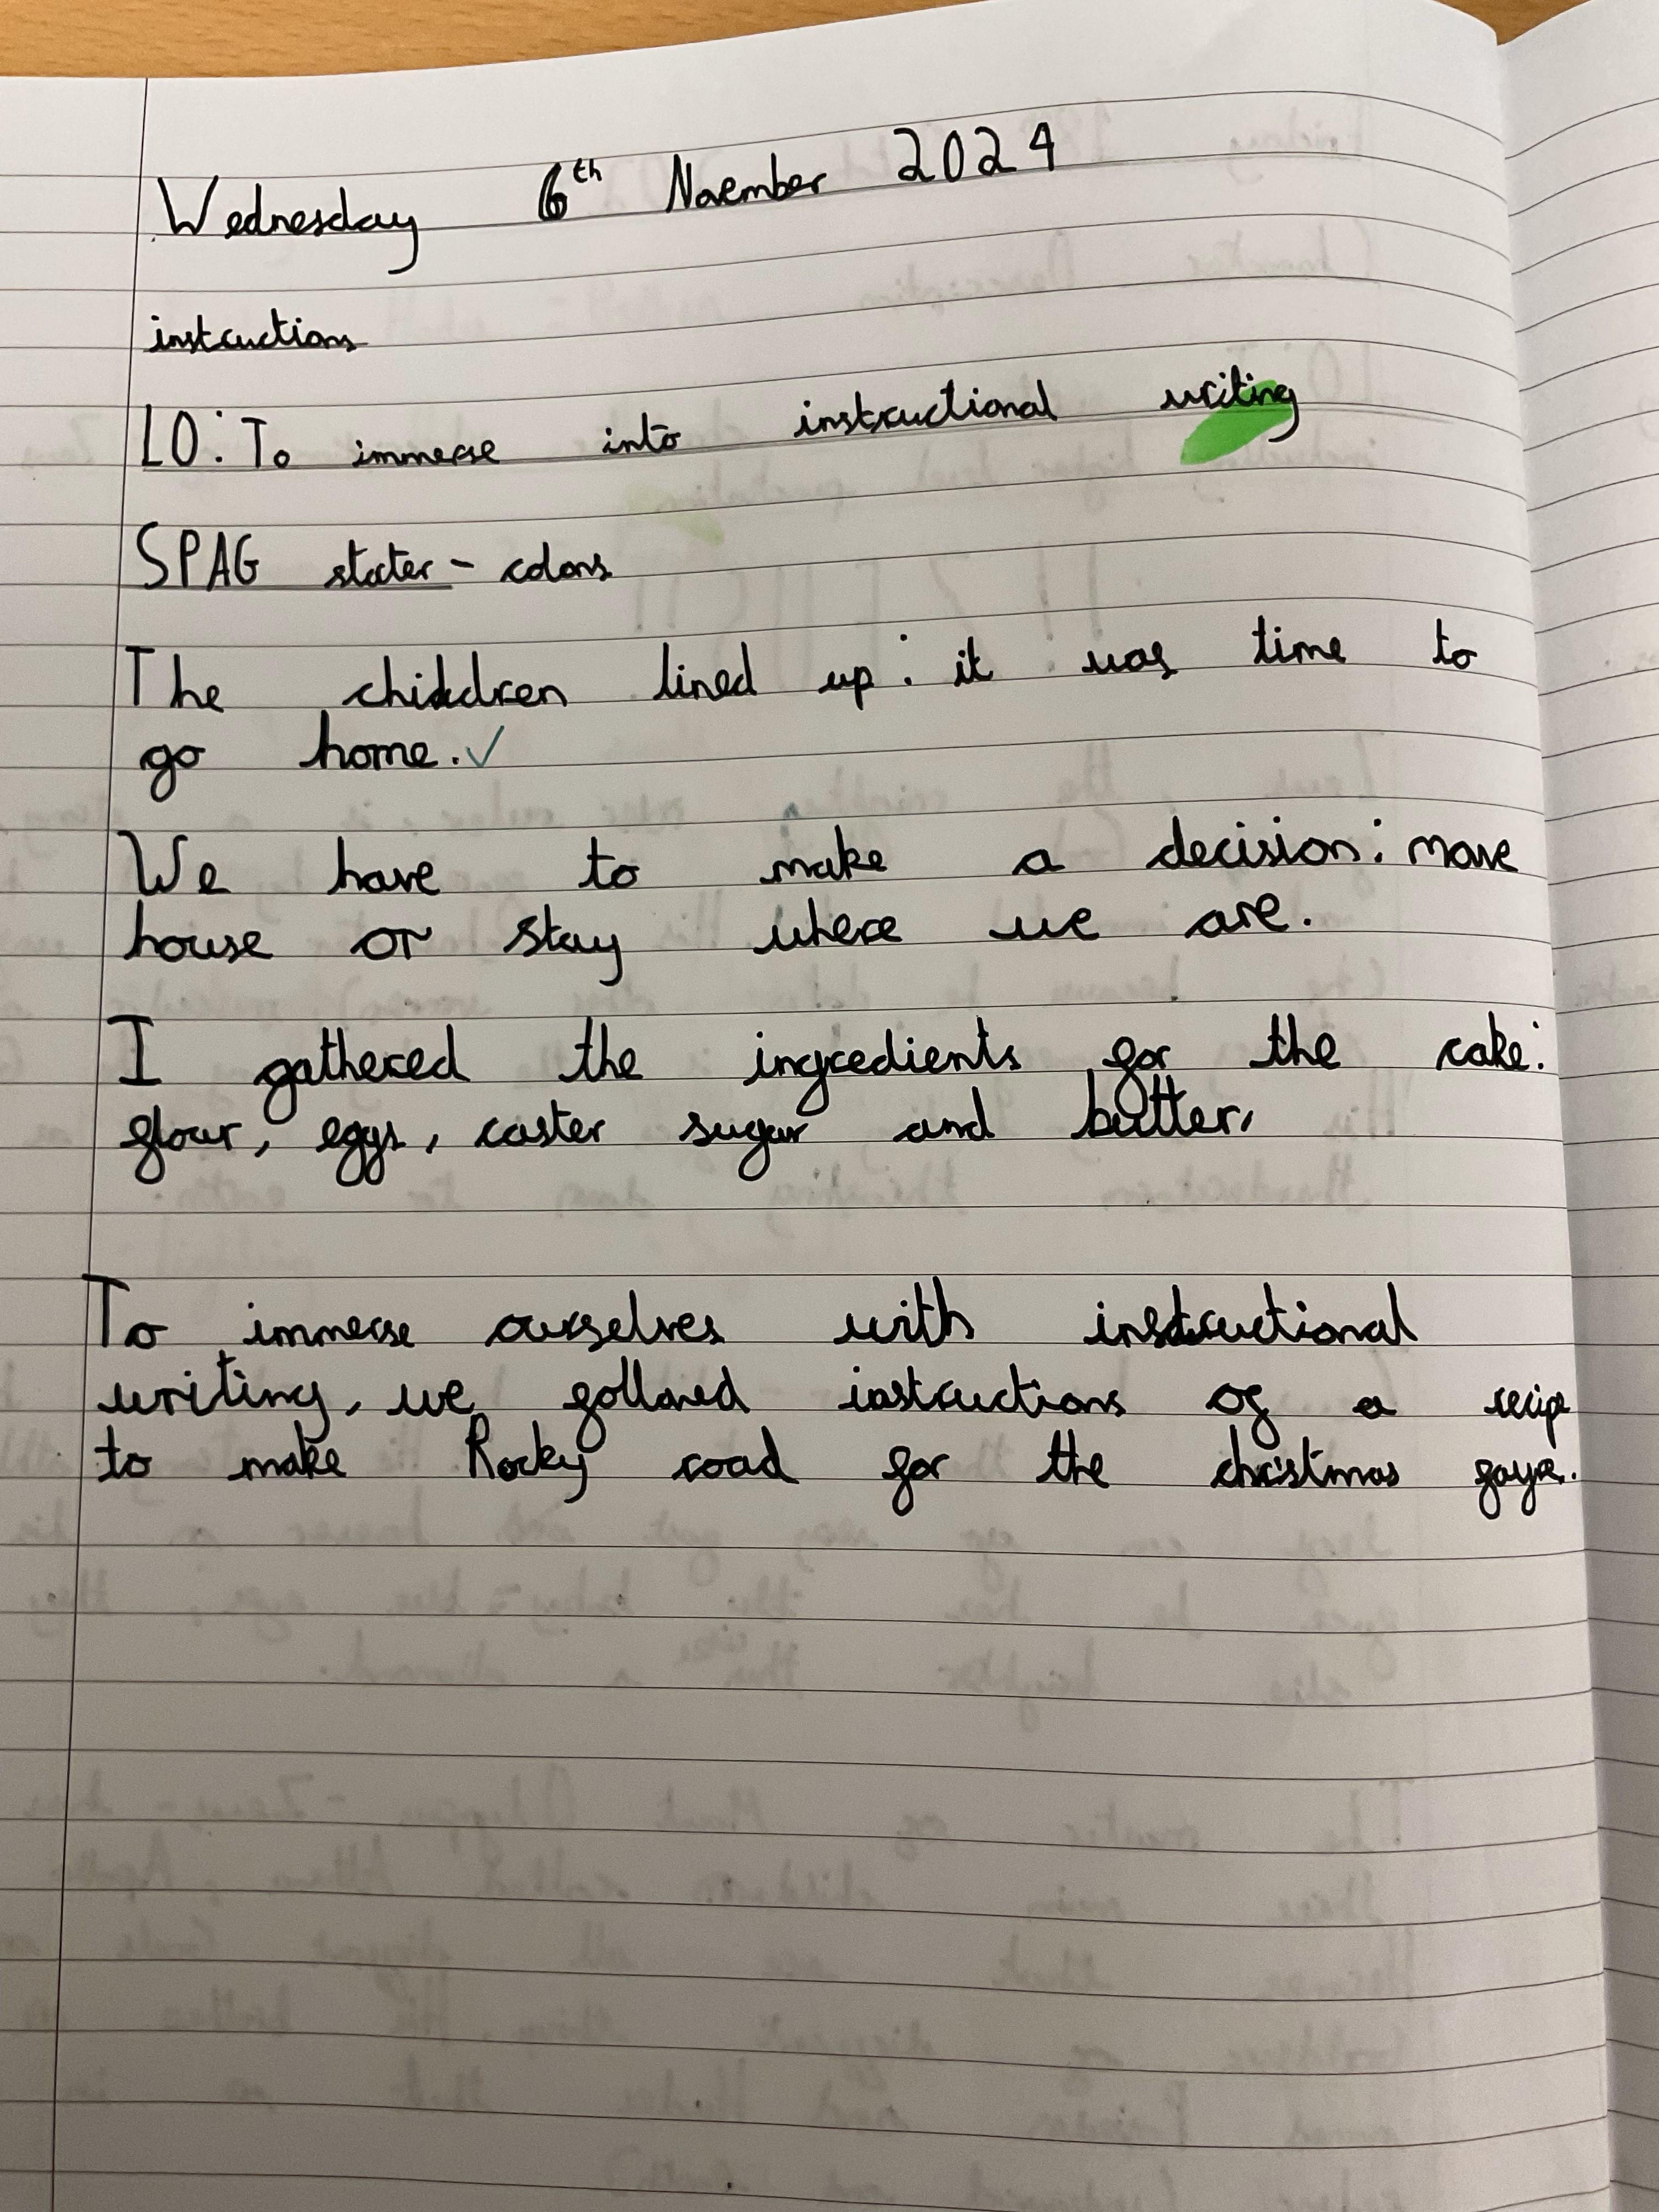 Wednesday 6th November 2024
instructions
LO: To immerse into instructional writing
SPAG stater - colons
The children lined up: it was time to
go home. ✓
We have to make a decision: move
house or stay where we are.
I gathered the ingredients for the cake:
flour, eggs, caster sugar and butter,
To immerse ourselves with instructional
writing, we followed instructions of a recipe
to make Rocky road for the christmas fayre.